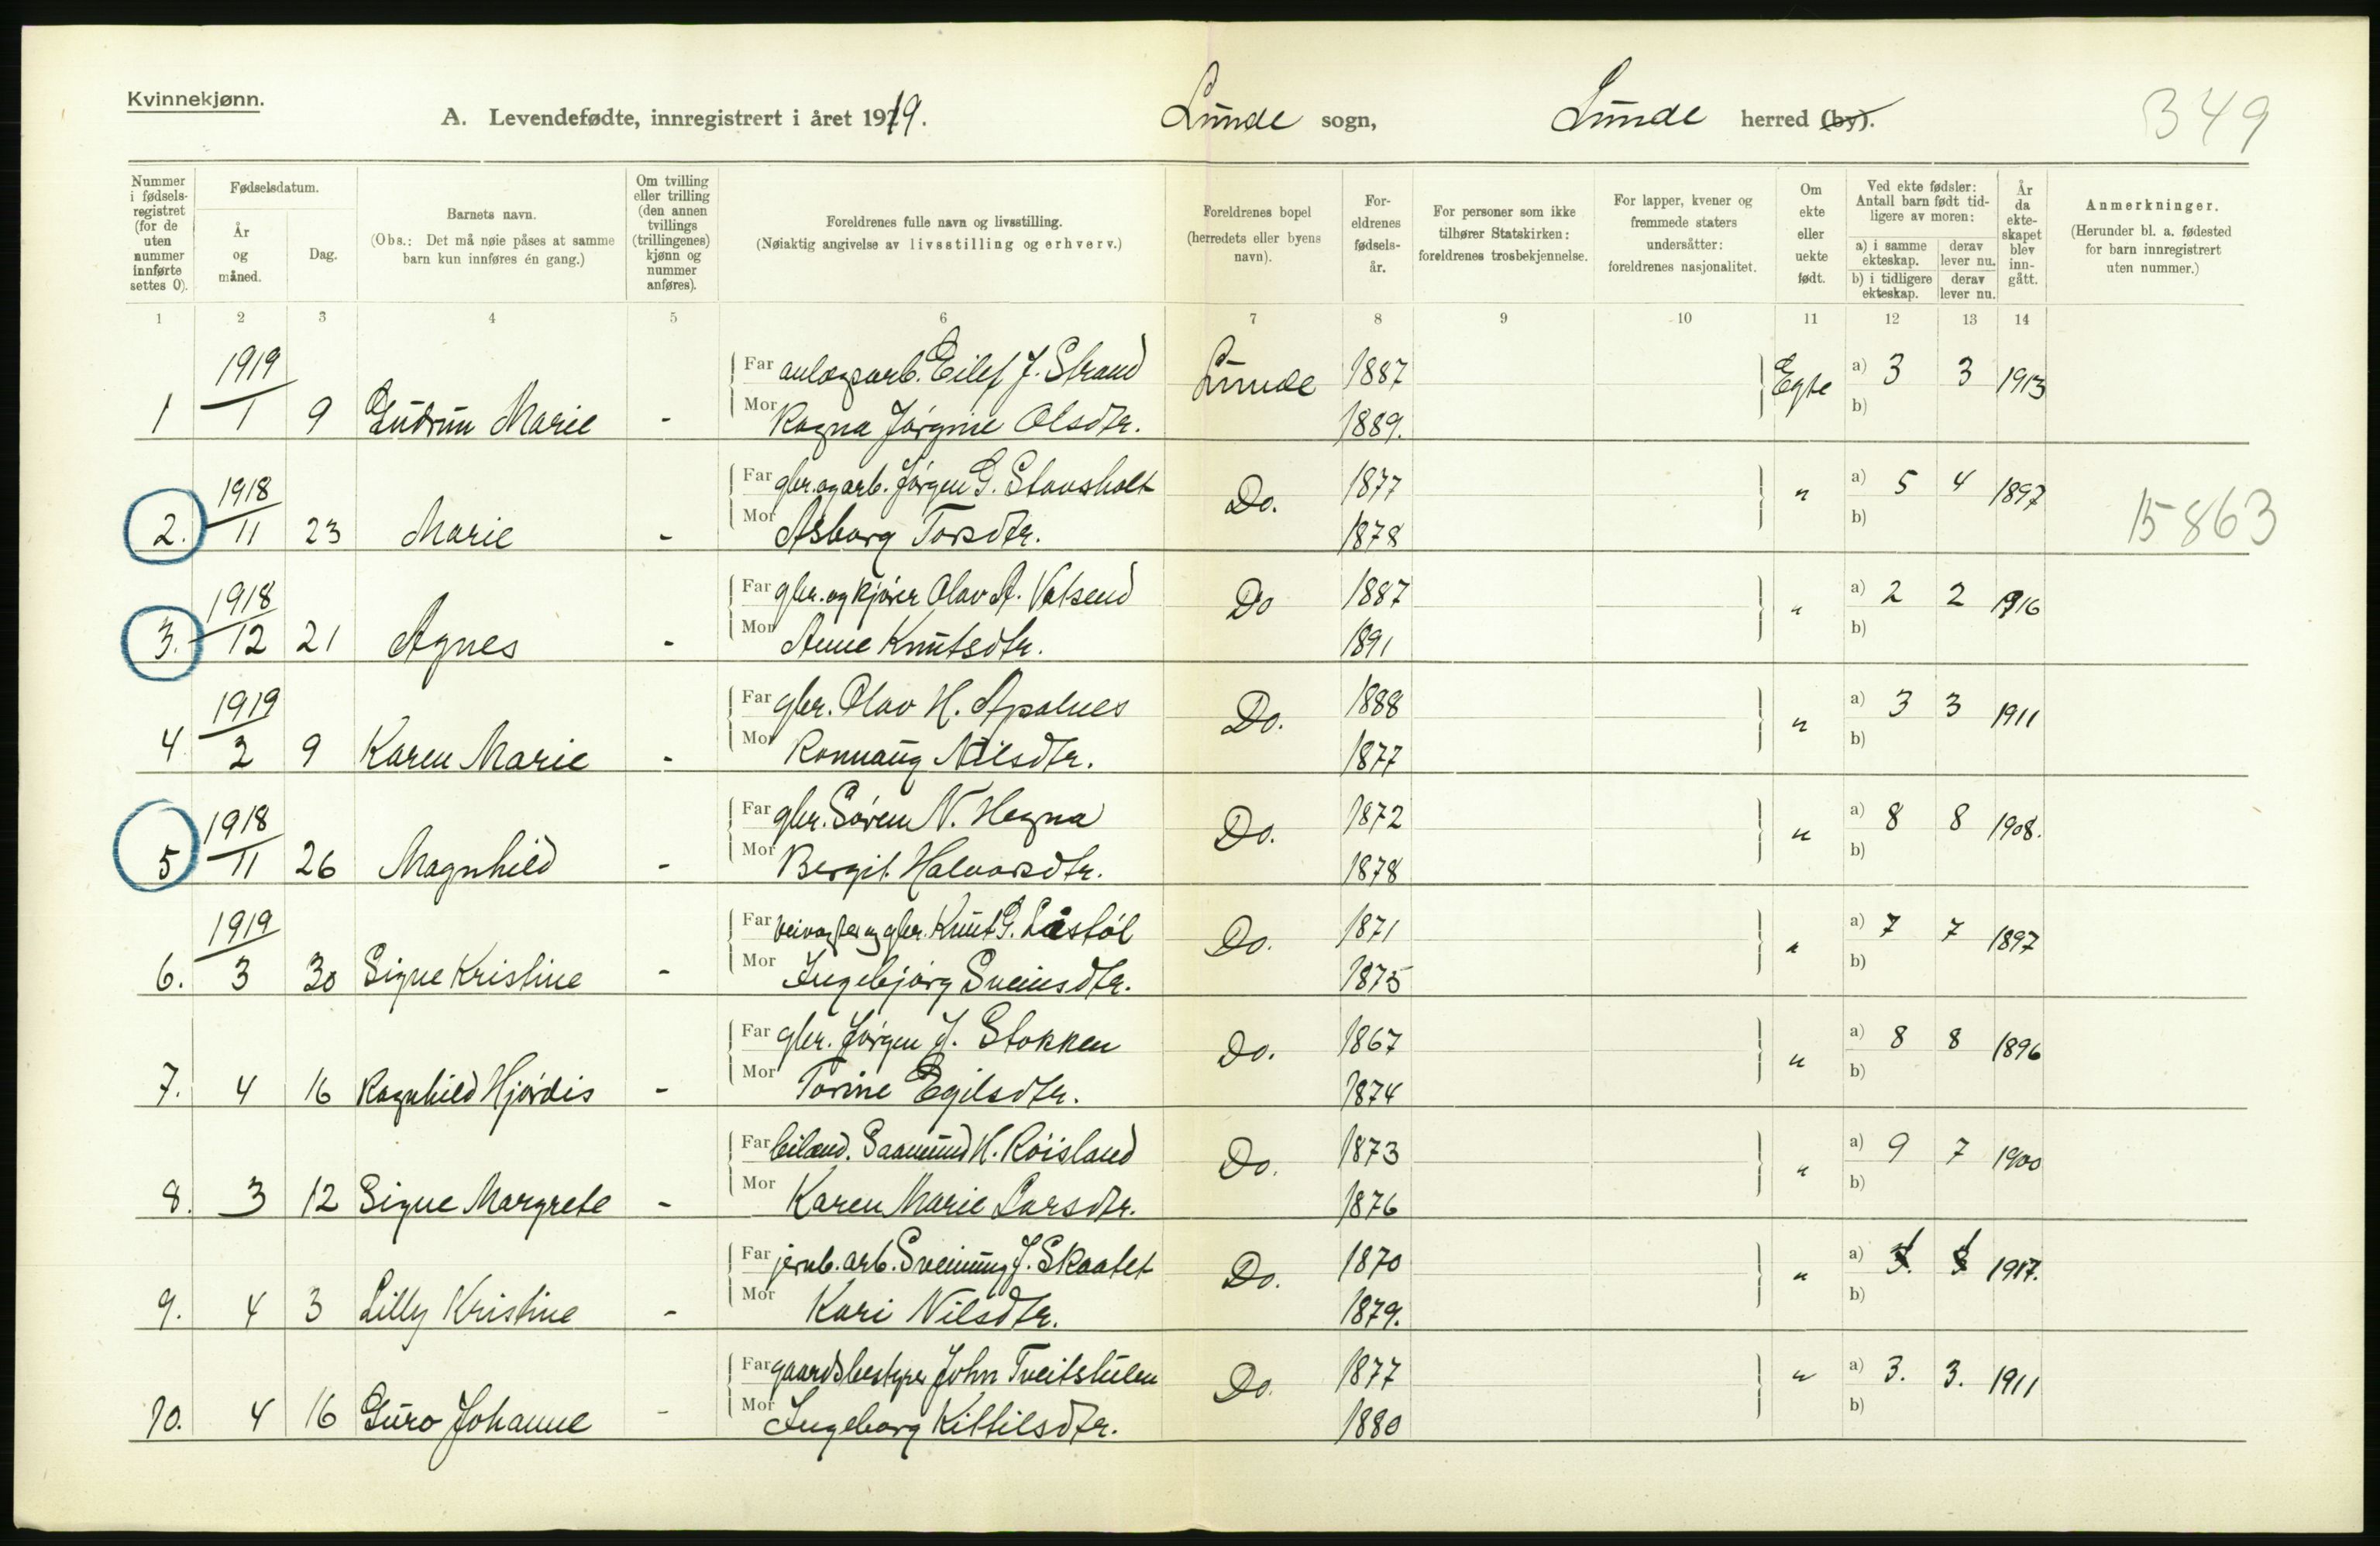 Kvinnekjønn.
A. Levendefødte, innregistrert i året 1919. Lunde sogn, Lunde herred (by). 349
Nummer i fødsels-registret (for de uten nummer innførte settes 0).
Fødselsdatum.
År og måned.
Dag.
Barnets navn.
(Obs.: Det må nøie påses at samme barn kun innføres én gang.)
Om tvilling eller trilling (den annen tvillings (trillingenes) kjønn og nummer anføres).
Foreldrenes fulle navn og livsstilling.
(Nøiaktig angivelse av livsstilling og erhverv.)
Foreldrenes bopel (herredets eller byens navn).
For-eldrenes fødsels-år.
For personer som ikke tilhører Statskirken: foreldrenes trosbekjennelse.
For lapper, kvener og fremmede staters undersåtter: foreldrenes nasjonalitet.
Om ekte eller uekte født.
Ved ekte fødsler: Antall barn født tid-ligere av moren:
a) i samme ekteskap. derav lever nu.
b) i tidligere ekteskap. derav lever nu.
År da ekte-skapet blev inn-gått.
Anmerkninger.
(Herunder bl. a. fødested for barn innregistrert uten nummer.)
1 2 3 4 5 6 7 8 9 10 11 12 13 14
1919
Far anlægsarb. Eilef J. Strand Lunde 1887 Egte a) 3 3 1913
1 1 9 Gudrun Marie - Mor Ragna Jørgine Olsdtr. 1889. b)
1918
Far gbr. og arb. Jørgen G. Stavsholt Do. 1877 " a) 5 4 1897
2. 11 23 Marie - Mor Asborg Torsdtr. 1878 b) 15863
1918
Far gbr. og kjører Olav A. Vatsend Do 1887 " a) 2 2 1916
3. 12 21 Agnes - Mor Anne Knutsdtr. 1891 b)
1919
Far gbr. Olav H. Apalnes Do. 1888 " a) 3 3 1911
4 2 9 Karen Marie - Mor Rannaug Nilsdtr. 1877 b)
1918
Far gbr. Søren N. Hegna Do. 1872 " a) 8 8 1908.
5 11 26 Magnhild - Mor Bergit Halvorsdtr. 1878 b)
1919
Far veivogter og gbr. Knut G. Låstøl Do. 1871 " a) 7 7 1897
6. 3 30 Signe Kristine - Mor Ingebjørg Sveinsdtr. 1875 b)
Far gbr. Jørgen J. Stokken Do. 1867 " a) 8 8 1896
7. 4 16 Ragnhild Hjørdis - Mor Torine Egilsdtr. 1874 b)
Far leilænd. Saamund H. Røisland Do. 1873 " a) 9 7 1900
8. 3 12 Signe Margrete - Mor Karen Marie Larsdtr. 1876 b)
Far jernb. arb. Sveinung J. Skaatet Do. 1870 " a) 1917.
9. 4 3 Lilly Kristine - Mor Kari Nilsdtr. 1879. b)
Far gaardsbestyrer John Tveitstulen Do. 1877 " a) 3. 3. 1911
10. 4 16 Guro Johanne - Mor Ingeborg Kittilsdtr. 1880 b)